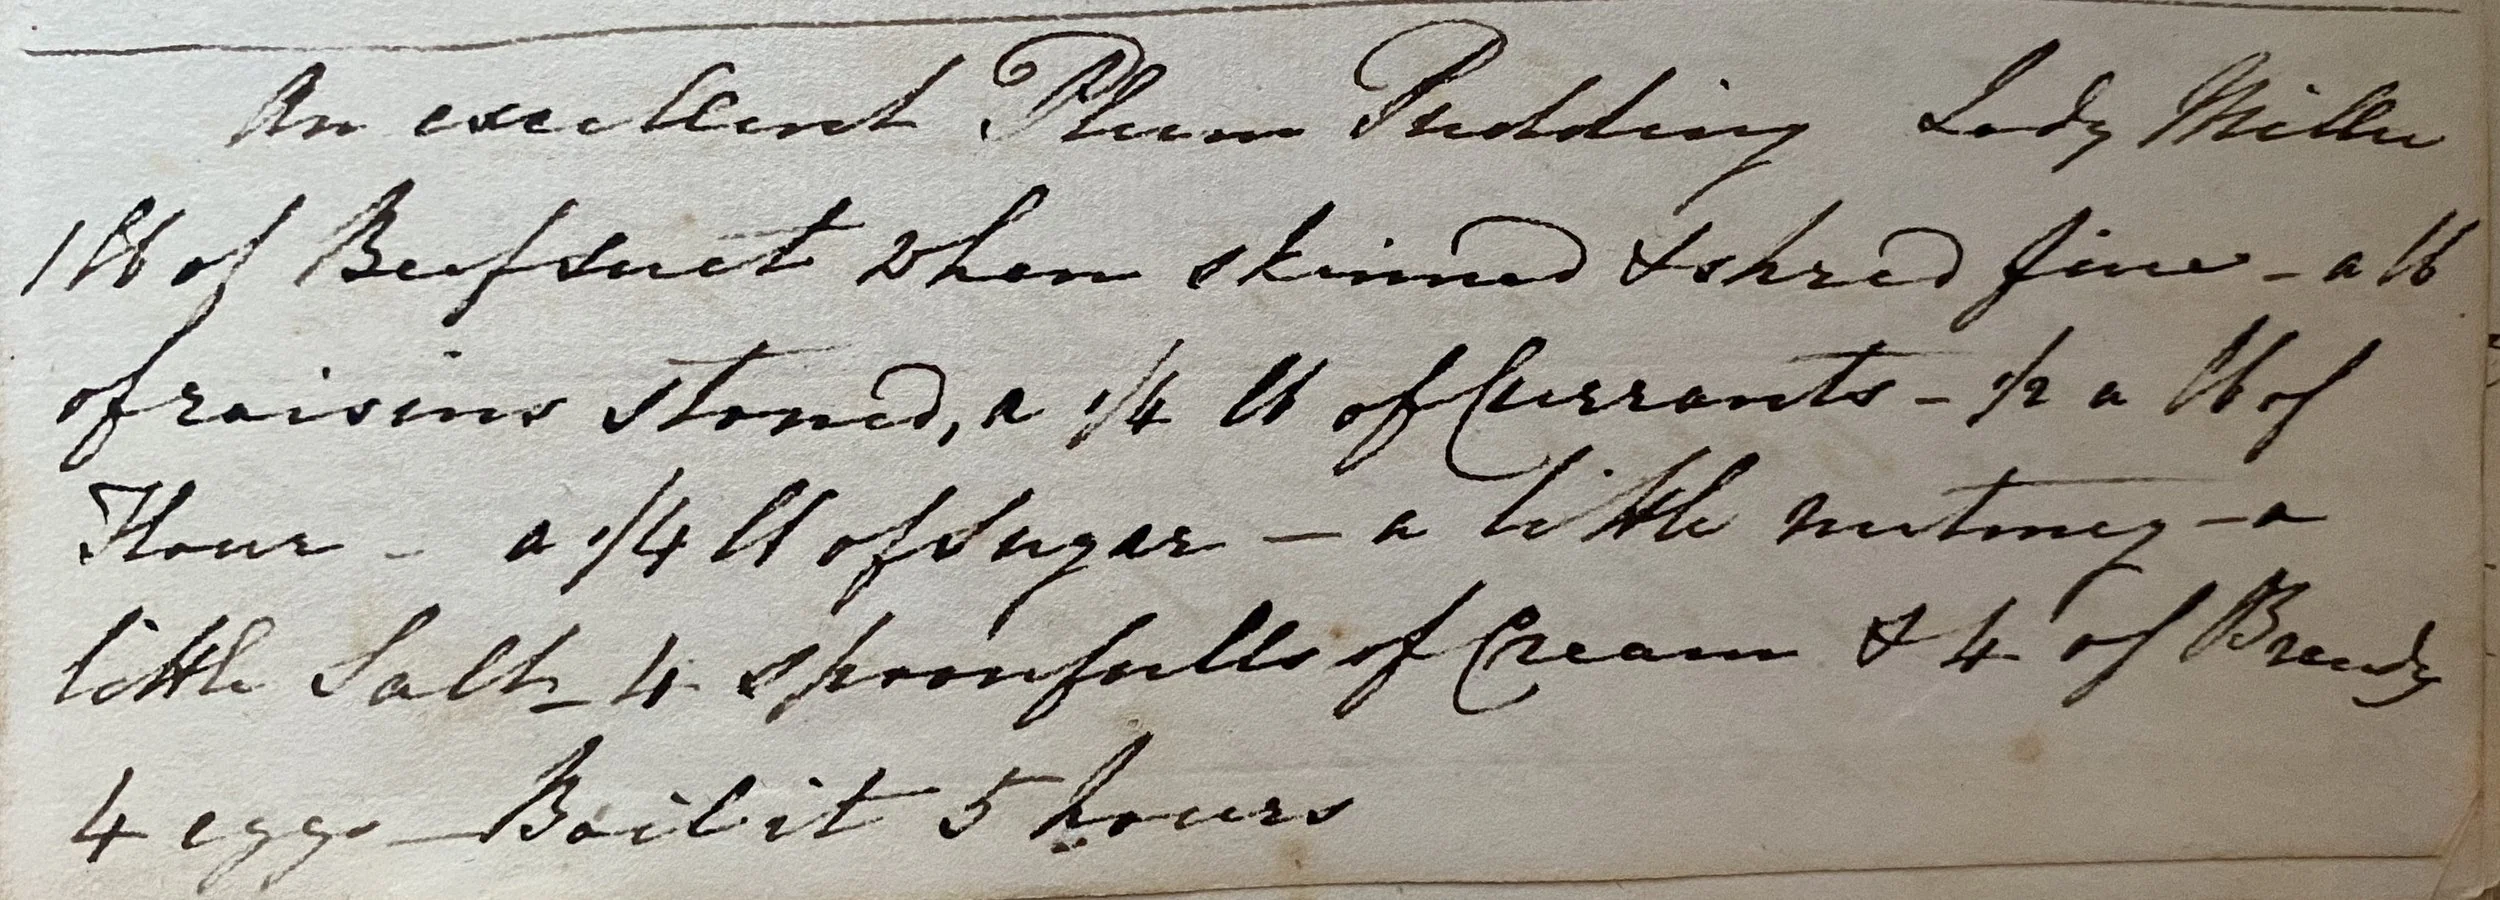 An excellent Plum Pudding Lady Miller
1 lb of Beef suet when skinned & shred fine - a lb
of raisins stoned, a 1/4 lb of Currants - 1/2 a lb of
Flour - a 1/4 lb of sugar - a little nutmeg - a
little Salt - 4 spoonfulls of Cream & 4 of Brandy
4 eggs - Boil it 5 hours